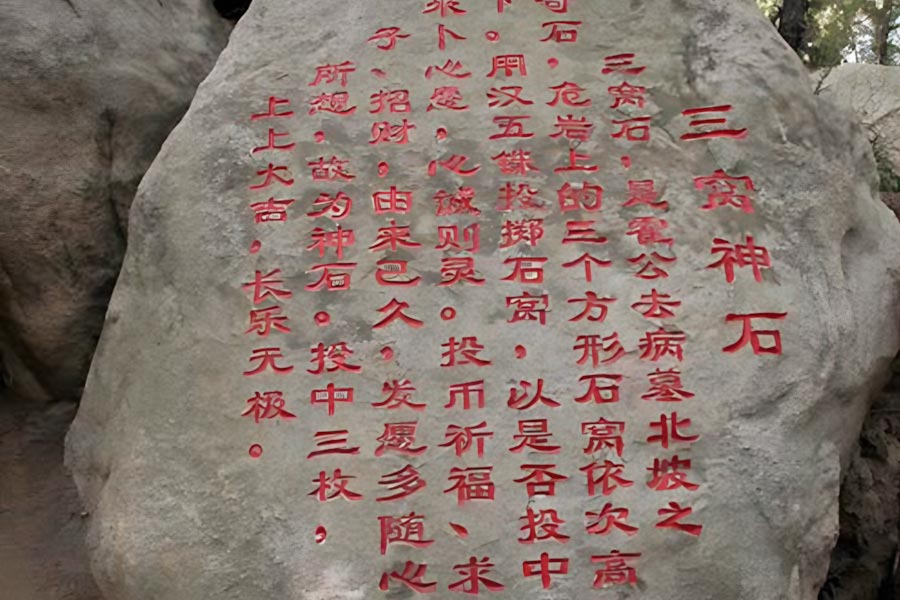 三窝神石
三窝石，是霍公去病墓北坡之
奇石，危岩上的三个方形石窝依次高
下。用汉五铢投掷石窝，以是否投中
来卜心愿，心诚则灵。投币祈福、求
子、招财，由来已久，发愿多随心
所想，故为神石。投中三枚，
上上大吉，长乐无极。